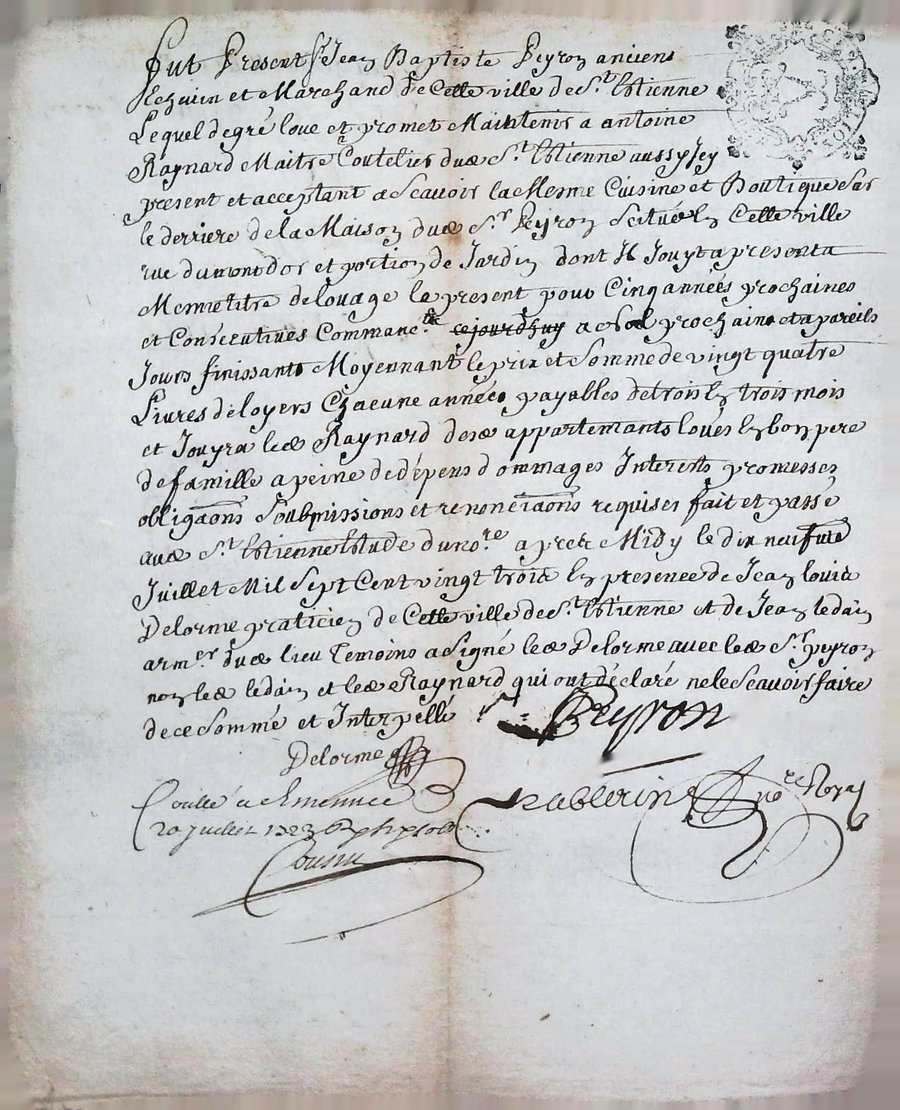 fut Present Sr Jean Baptiste Peyron ancien
Echevin et Marchand de Cette ville de St. Etienne
Lequel de gré loue et promet Maintenir a antoine
Raynard Maitre Coutelier dud. St. Etienne aussy Icy
present et acceptant a Scavoir la Mesme Cuisine et Boutique Sur
le derriere de la Maison dud. Sr. Peyron Scitué En Cette ville
rue du mont dor et portion de Jardin dont Il Jouyt a present a
Meme titre de louage le present pour Cinq années prochaines
et Consecutives Commanc. ce jourdhuy a prochain et a pareils
Jours finissants Moyennant le prix et Somme de vingt quatre
Livres de loyers Chacune année payables de trois En trois mois
et Jouyra led. Raynard desd. appartemants loués En bon pere
de famille a peine de dépens dommages Interests promesses
obligaons Soubmissions et renonciaons requises fait et passé
aud. St. Etienne Etude du nore. apres Midy le dix neufvie
Juillet Mil Sept Cent vingt trois En presence de Jean louis
Delorme praticien de Cette ville de St. Etienne et de Jean ledin
armer. dud. lieu Temoins a Signé led. Delorme avec led. Sr. peyron
non led. ledin et led. Raynard qui ont déclaré ne le Scavoir faire
de ce Sommé et Interpellé
Peyron
Delorme
nore Royal
20 juillet 1723